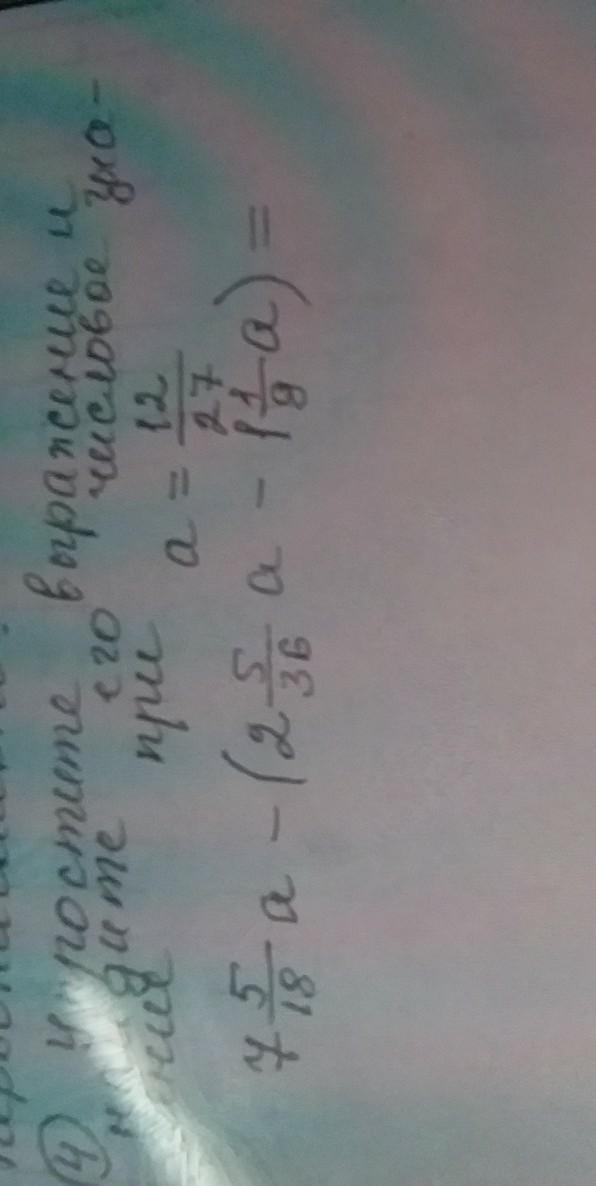 ④ упростите выражение и
найдите его числовое зна-
чение при a = 12/27
7 5/18 a - (2 5/36 a - 1 1/9 a) =